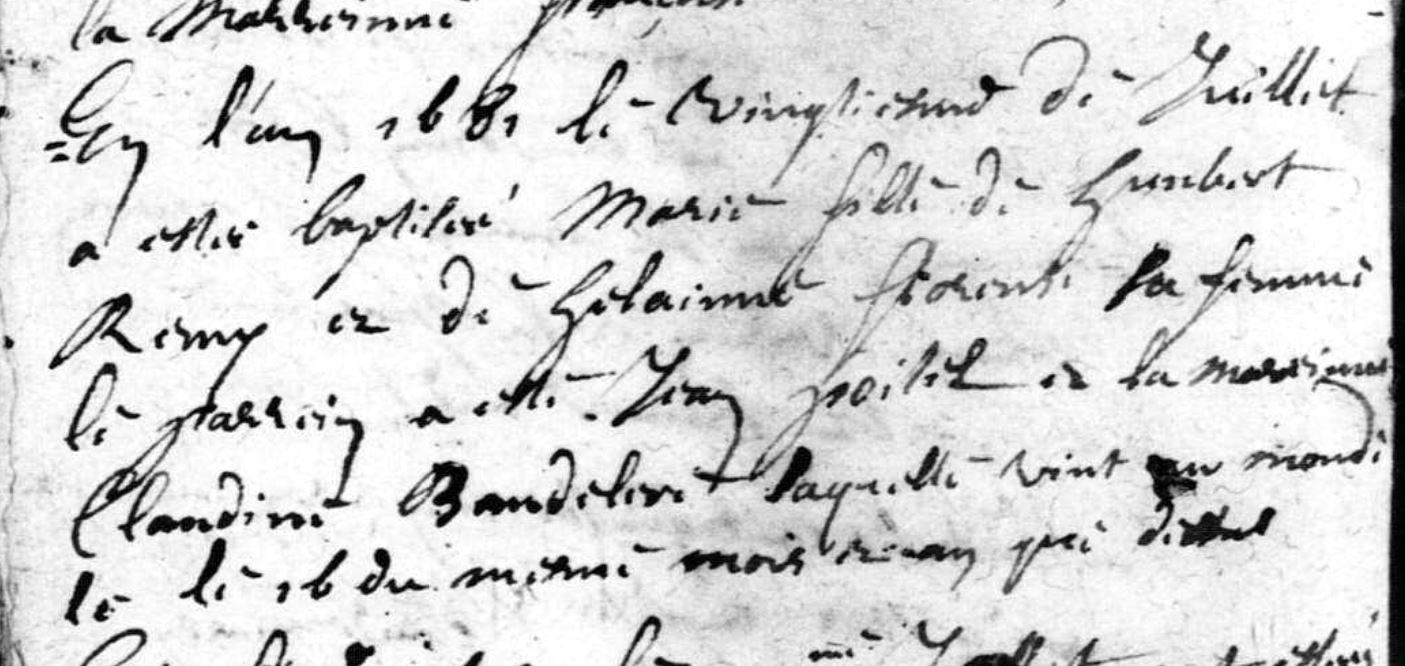 la Marreinne
En l'an 1681 le vingtiesme de Juillet
a estée baptisée Marie fille de Humbert
Remy et de Helainne sa femme
le parrein a esté Jean et la marreinne
Claudine laquelle vint au monde
le 16 du mesme mois et an que dessus
Juillet